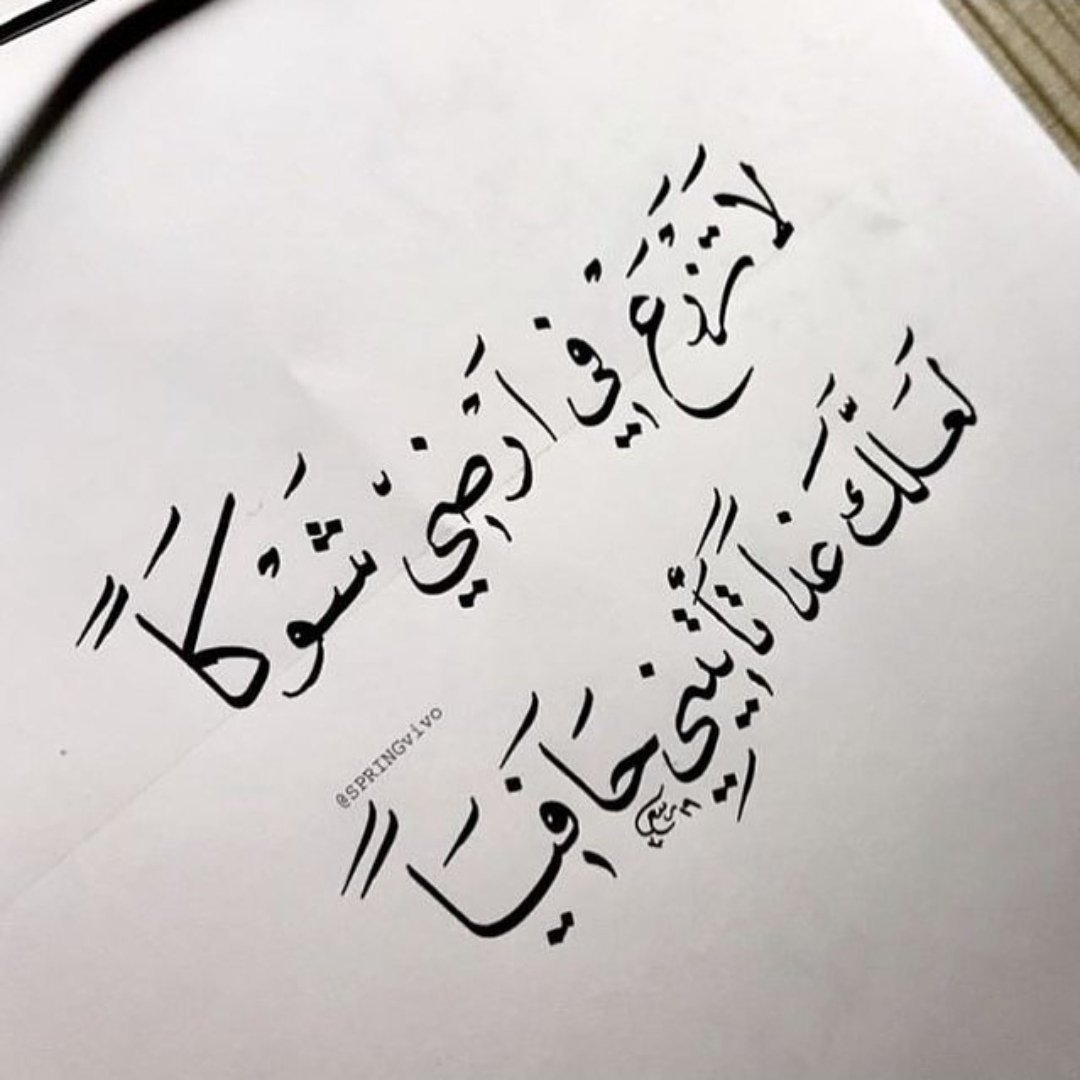 لَا تَزْرَعَ فِي أَرْضِي شَوْكَاً
لَعَلَّكَ غَداً تَأْتِينِي حَافِيَاً
@SPRINGvivo